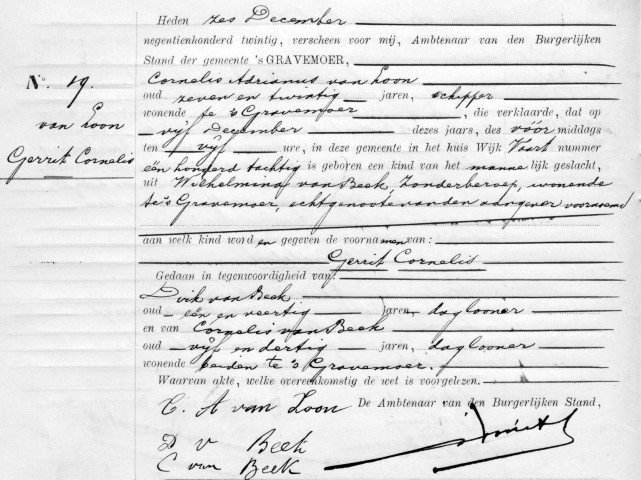 Heden zes December
negentienhonderd twintig, verscheen voor mij, Ambtenaar van den Burgerlijken
Stand der gemeente 's GRAVEMOER,
No. 19.
van Loon
Gerrit Cornelis
Cornelis Adrianus van Loon
oud zeven en twintig jaren, schipper
wonende te 's Gravemoer, die verklaarde, dat op
vijf December dezes jaars, des vóór middags
ten vijf ure, in deze gemeente in het huis Wijk Vaart nummer
één honderd tachtig is geboren een kind van het mannelijk geslacht,
uit Wilhelmina van Beek, zonder beroep, wonende
te 's Gravemoer, echtgenoote van den aangever voornoemd
aan welk kind word en gegeven de voornamen van:
Gerrit Cornelis
Gedaan in tegenwoordigheid van
Dirk van Beek
oud één en veertig jaren, daglooner
en van Cornelis van Beek
oud vijf en dertig jaren, daglooner
wonende beiden te 's Gravemoer.
Waarvan akte, welke overeenkomstig de wet is voorgelezen.
C. A van Loon De Ambtenaar van den Burgerlijken Stand,
D v Beek
C van Beek